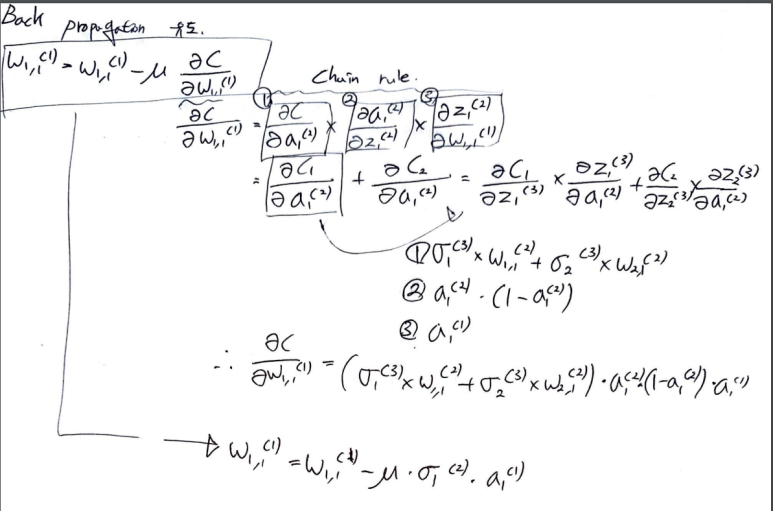 Back propagation 유도.
w₁,₁⁽¹⁾ = w₁,₁⁽¹⁾ - μ ∂C/∂w₁,₁⁽¹⁾
Chain rule.
∂C/∂w₁,₁⁽¹⁾ = ① ∂C/∂a₁⁽²⁾ × ② ∂a₁⁽²⁾/∂z₁⁽²⁾ × ③ ∂z₁⁽²⁾/∂w₁,₁⁽¹⁾
= ∂C₁/∂a₁⁽²⁾ + ∂C₂/∂a₁⁽²⁾ = ∂C₁/∂z₁⁽³⁾ × ∂z₁⁽³⁾/∂a₁⁽²⁾ + ∂C₂/∂z₂⁽³⁾ × ∂z₂⁽³⁾/∂a₁⁽²⁾
① σ₁⁽³⁾ × w₁,₁⁽²⁾ + σ₂⁽³⁾ × w₂,₁⁽²⁾
② a₁⁽²⁾ · (1 - a₁⁽²⁾)
③ a₁⁽¹⁾
∴ ∂C/∂w₁,₁⁽¹⁾ = (σ₁⁽³⁾ × w₁,₁⁽²⁾ + σ₂⁽³⁾ × w₂,₁⁽²⁾) · a₁⁽²⁾ · (1 - a₁⁽²⁾) · a₁⁽¹⁾
→ w₁,₁⁽¹⁾ = w₁,₁⁽¹⁾ - μ · σ₁⁽²⁾ · a₁⁽¹⁾